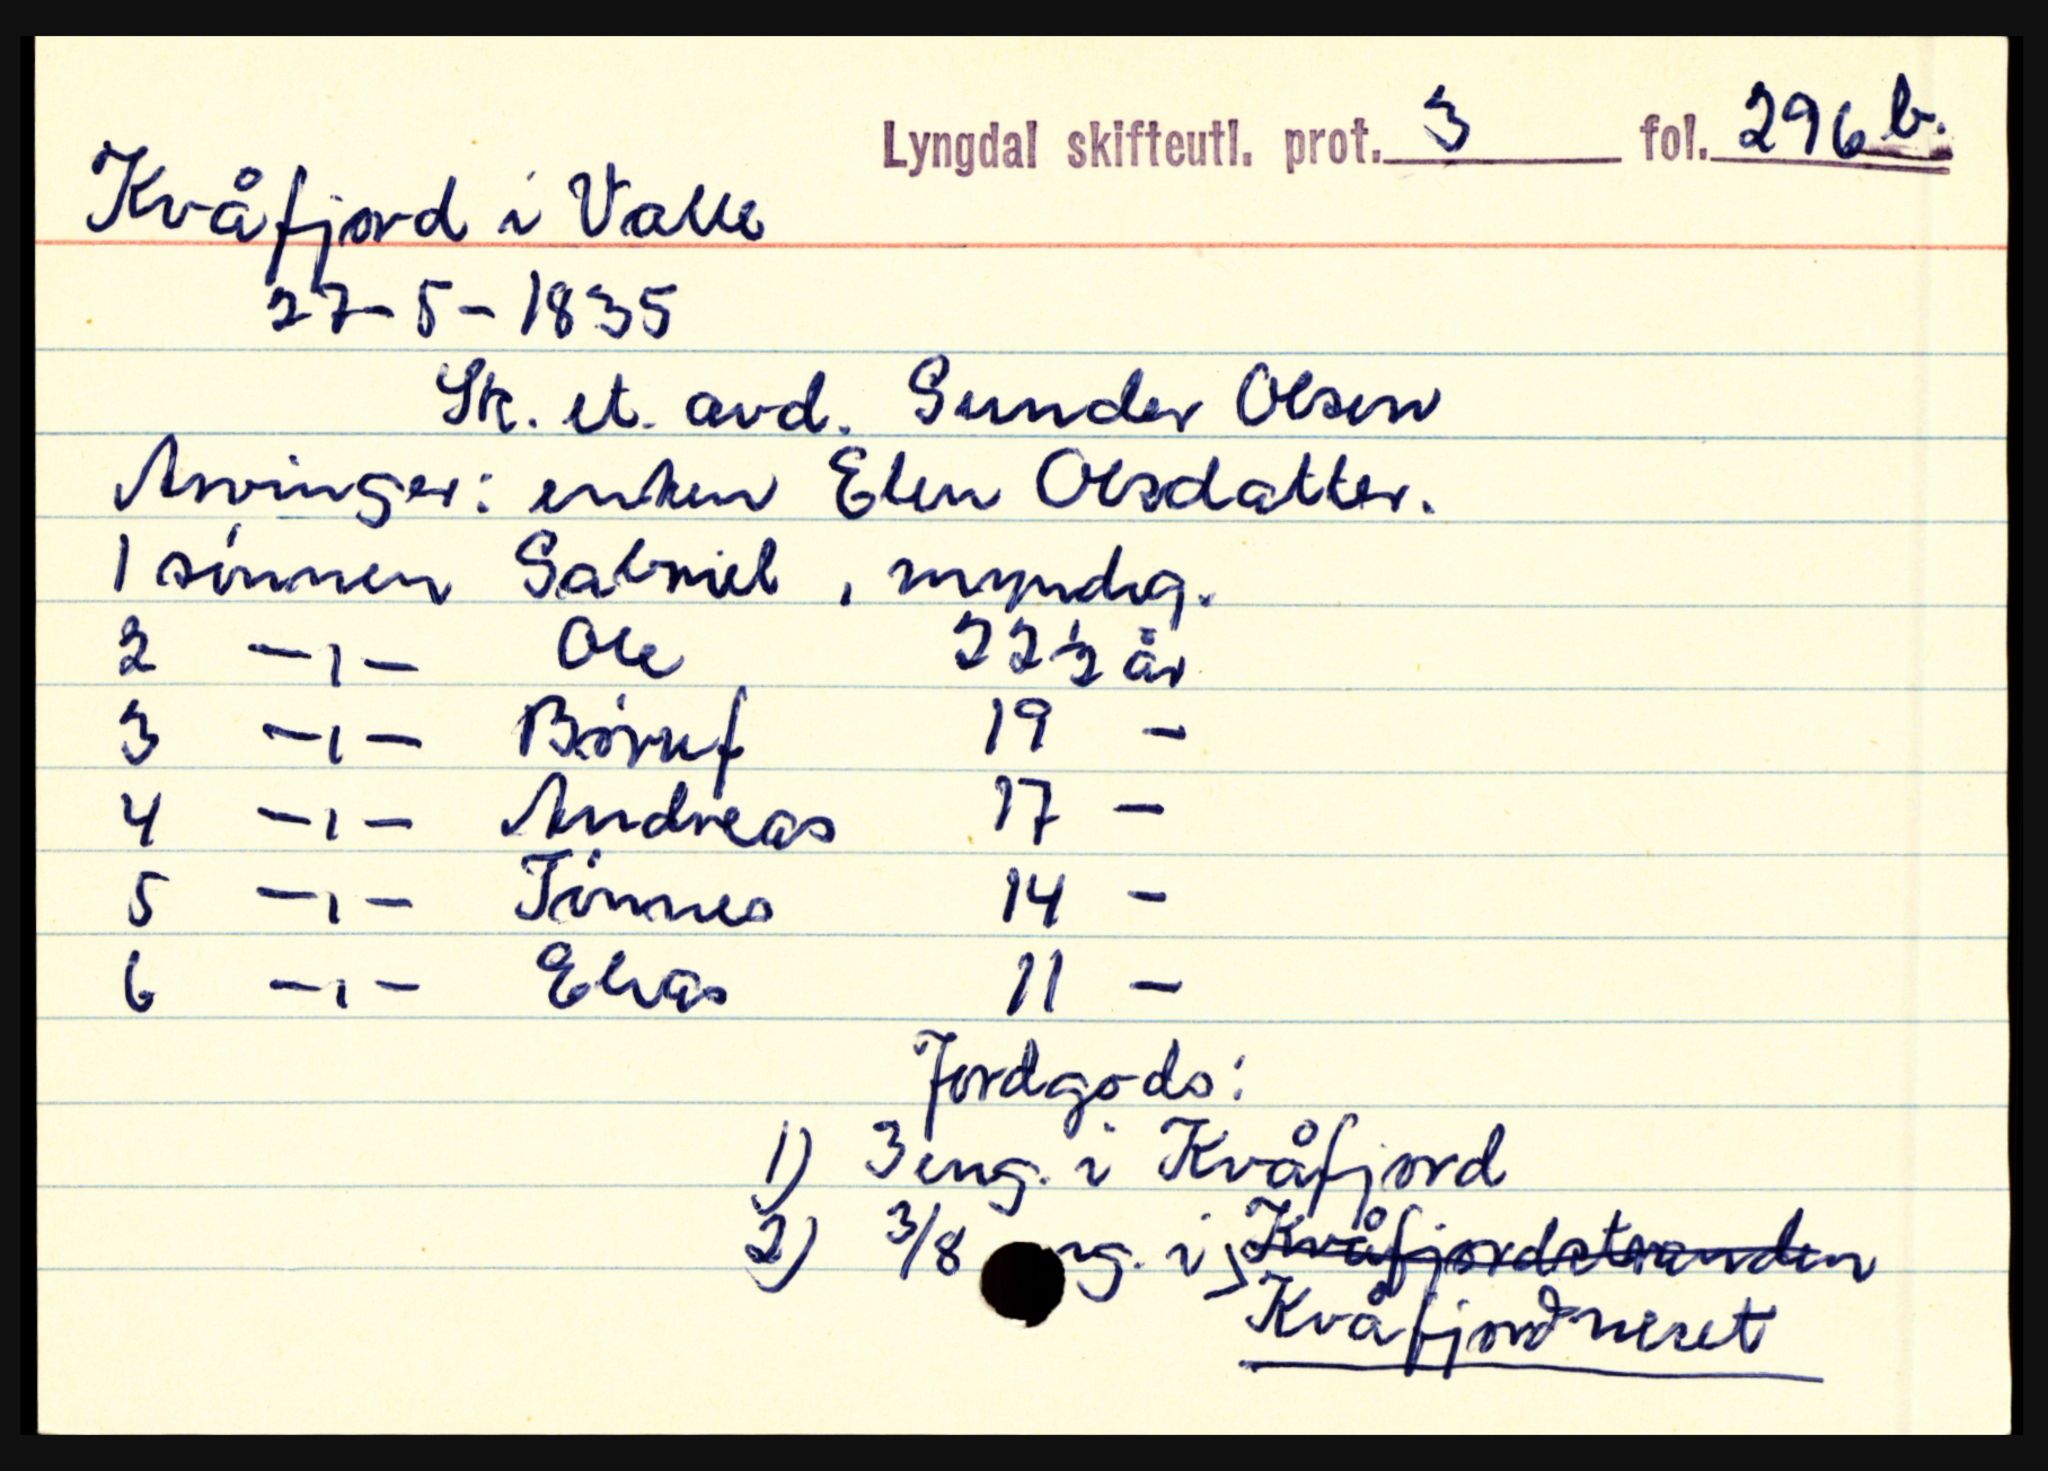 Lyngdal skifteutl. prot. 3 fol. 296 b.
Kvåfjord i Valle
27-5-1835
Sk. et. avd. Gunder Olsen
Arvinger: enken Elen Olsdatter.
1 sønnen Gabriel, myndig.
2 -,- Ole 22 1/2 år
3 -,- Børuf 19 -
4 -,- Andreas 17 -
5 -,- Tønnes 14 -
6 -,- Elias 11 -
Jordgods:
1) 3 eng. i Kvåfjord
2) 3/8 ng. i Kvåfjordstranden
Kvåfjordneset